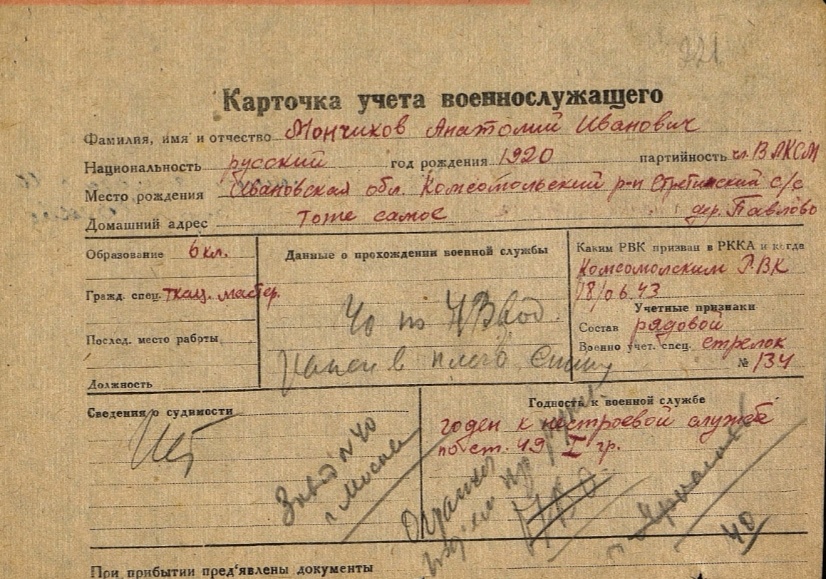 221
Карточка учета военнослужащего
Фамилия, имя и отчество Мончиков Анатолий Иванович
Национальность русский год рождения 1920 партийность чл. ВЛКСМ
Место рождения Ивановская обл. Комсомольский р-н с/с
Домашний адрес тоже самое дер. Павлово
Образование 6 кл.
Гражд. спец. ткац. мастер.
Послед. место работы
Должность
Данные о прохождении военной службы
40 по
ранен в плечо спину
Каким РВК призван в РККА и когда
Комсомолским РВК
18/06.43
Учетные признаки
Состав рядовой
Военно учет. спец. стрелок
№ 134
Сведения о судимости
Нет
Завод № 40
г. Москва
Годность к военной службе
годен к нестроевой службе
по ст. 49 I гр.
40
При прибытии пред'явлены документы